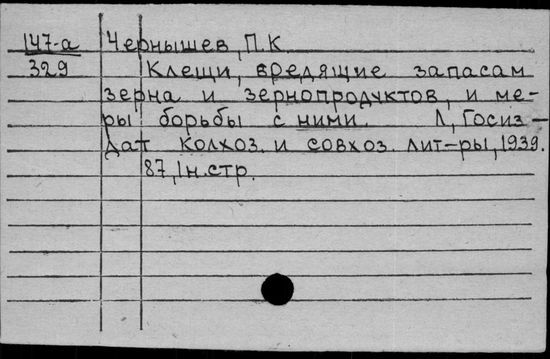 147-а Чернышев, П.К.
329 Клещи, вредящие запасам
зерна и зернопродуктов, и ме-
ры борьбы с ними. Л, Госиз-
дат колхоз. и совхоз. лит-ры, 1939.
87, 1н.стр.